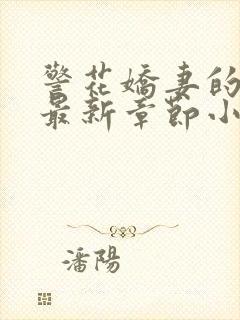 警花嬌妻的
最新章節小
潘陽